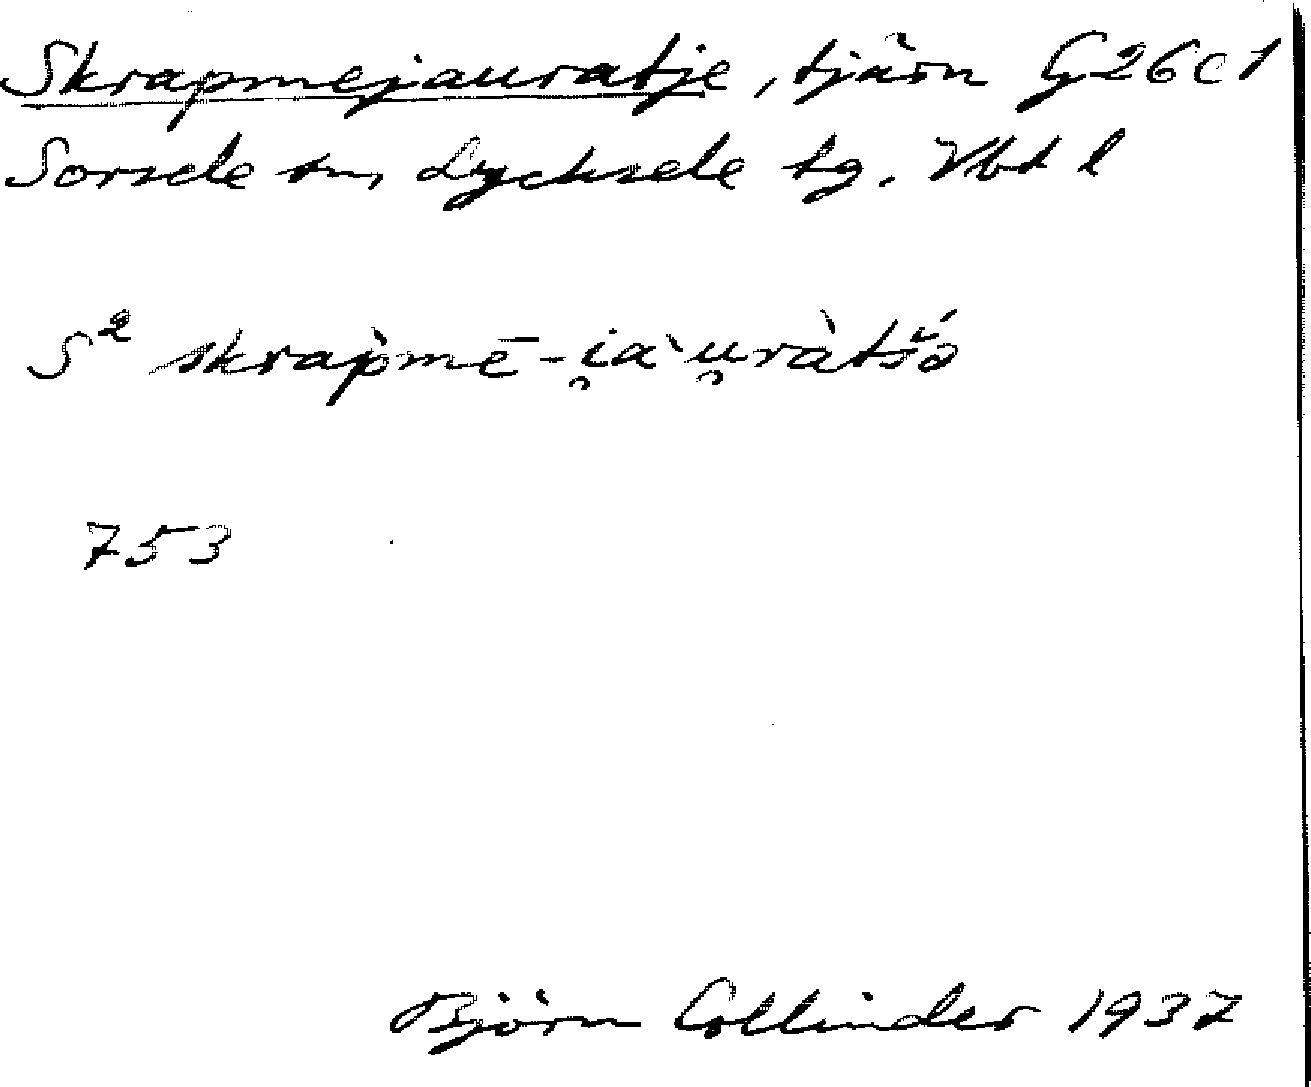 Skrapmejauratje, tjärn G26c1
Sorsele sn, Lycksele tg. Vbt l
S² skrap̀mē-i̯a`u̯ràtšó
753
Björn Collinder 1937